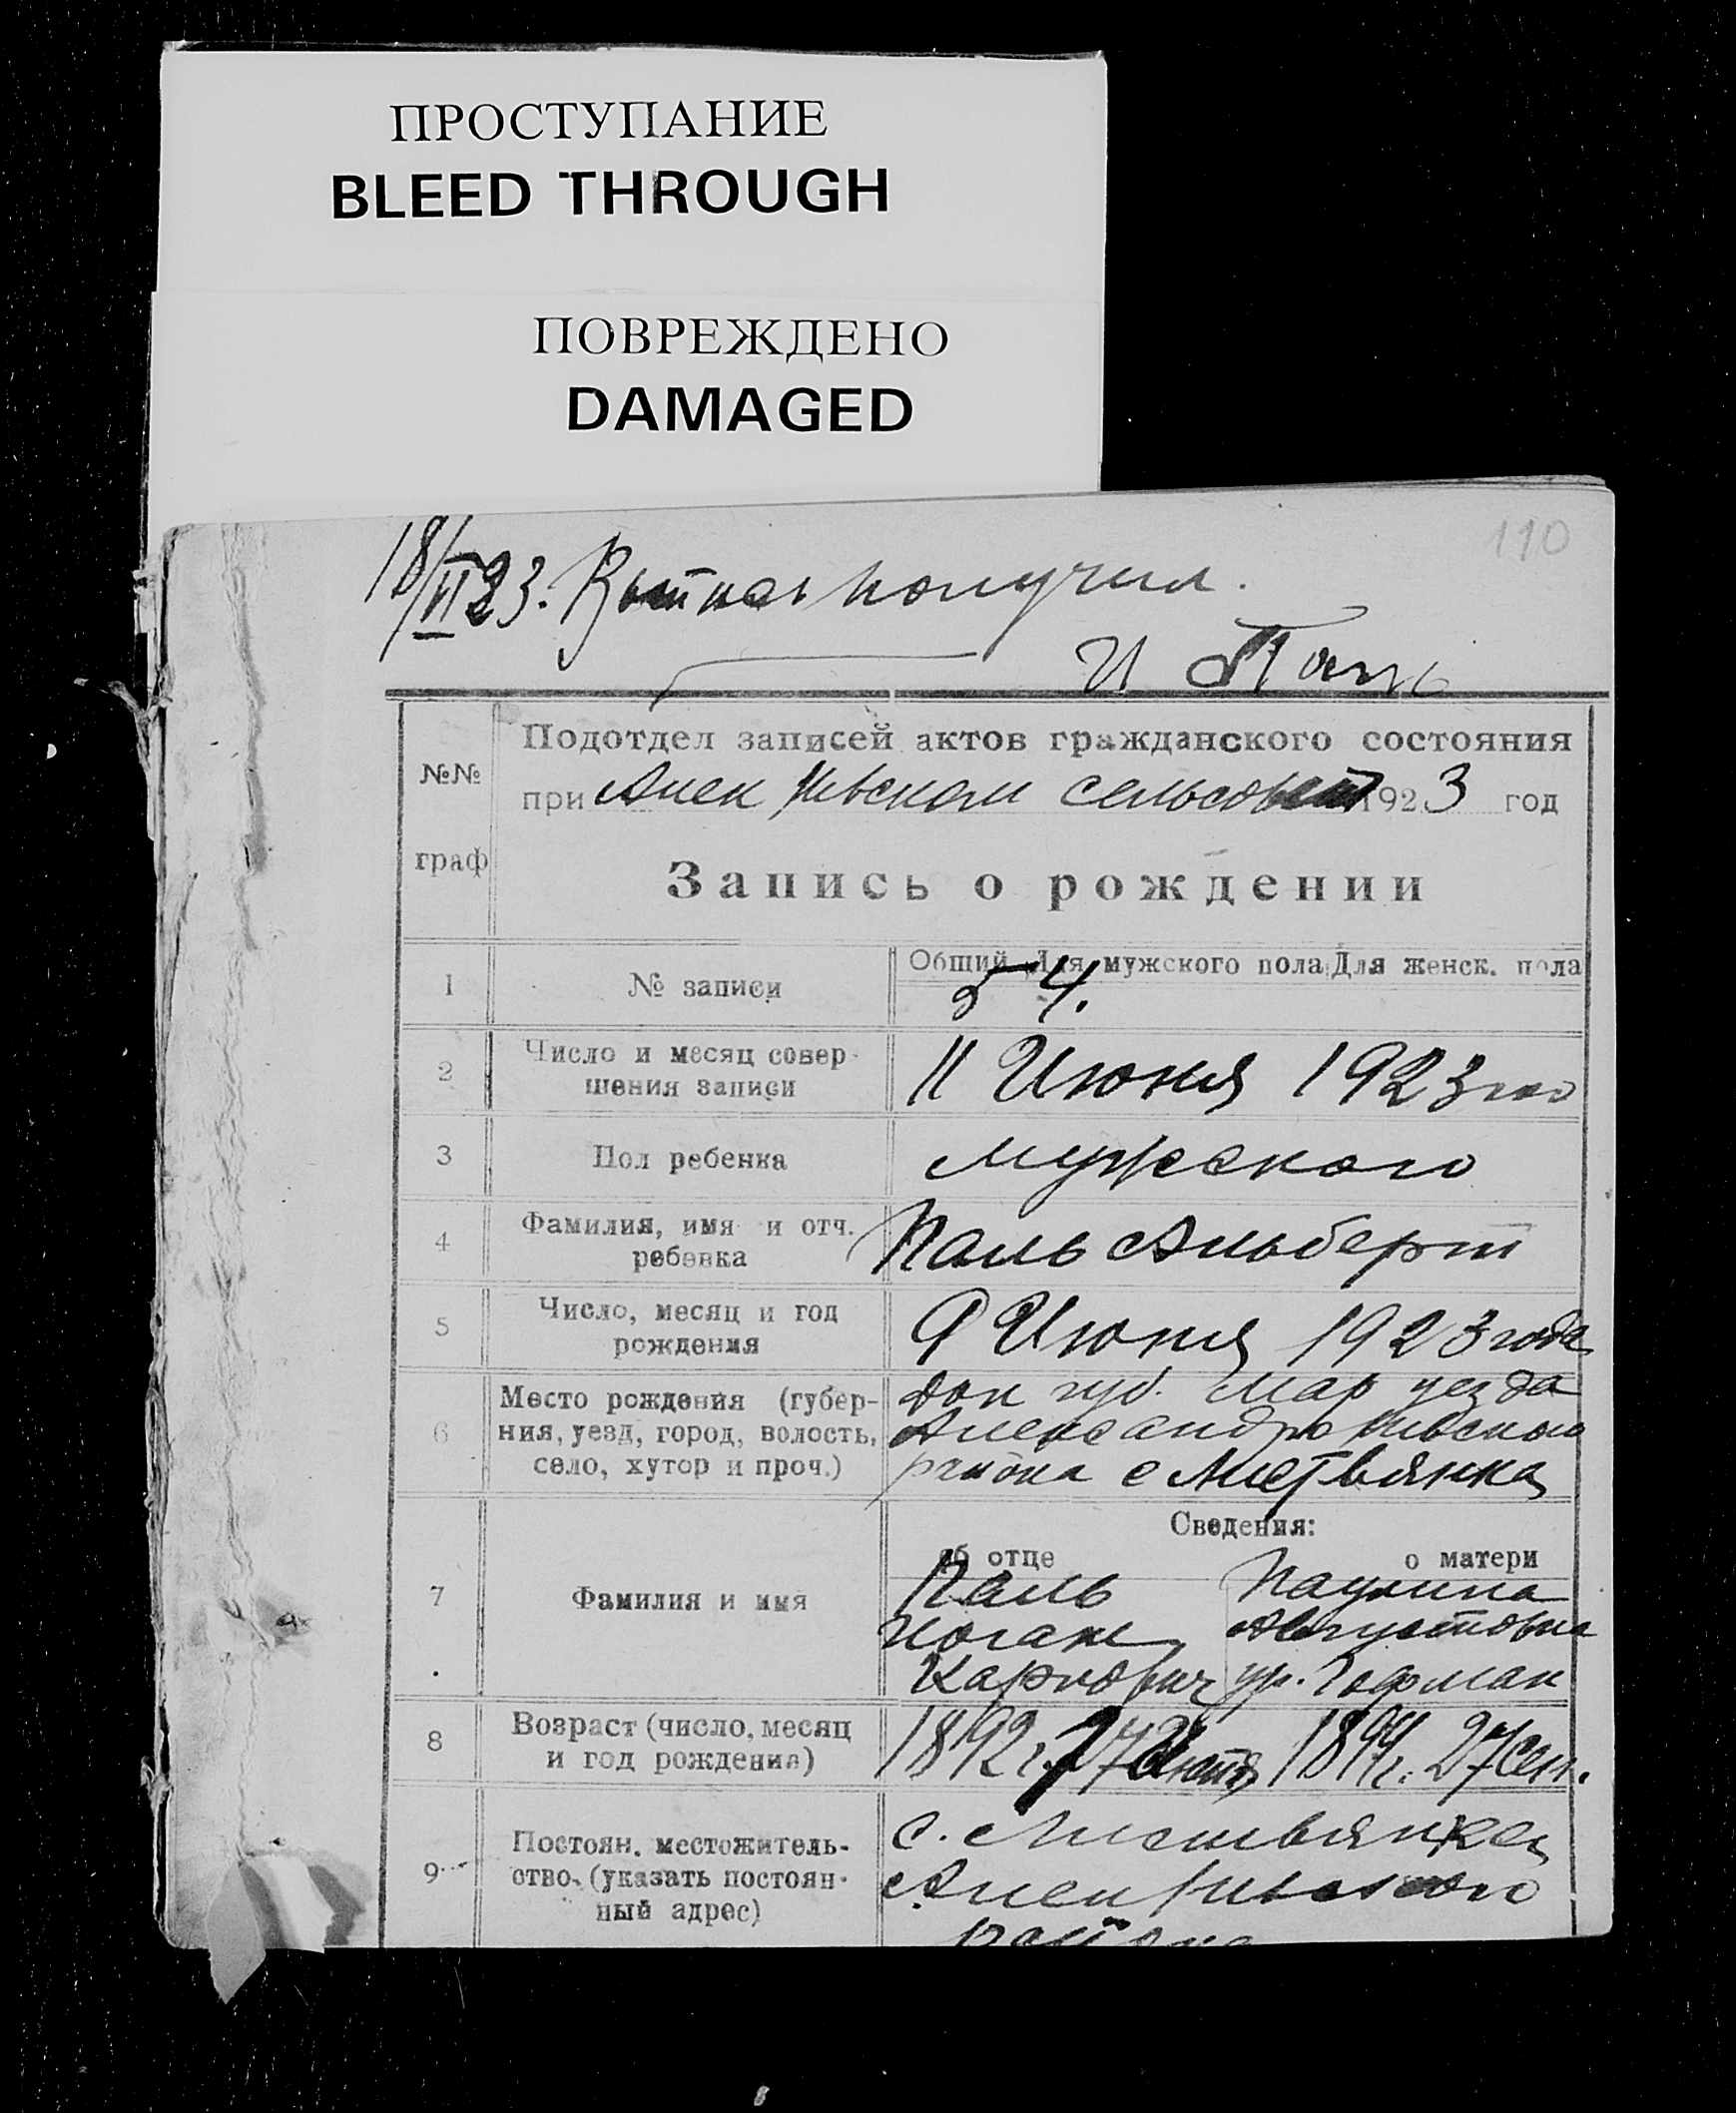 ПРОСТУПАНИЕ
BLEED THROUGH
ПОВРЕЖДЕНО
DAMAGED
110
18/VI 23. получил.
И Паль
Подотдел записей актов гражданского состояния
№№
при Алек сельсовет 1923 год
граф
Запись о рождении
Общий Для мужского пола Для женск. пола
1 № записи 54.
2 Число и месяц совер-
шения записи
11 Июня 1923 го
3 Пол ребенка мужского
4 Фамилия, имя и отч.
ребенка
Паль Альберт
5 Число, месяц и год
рождения
9 Июня 1923 года
6 Место рождения (губер-
ния, уезд, город, волость,
село, хутор и проч.)
Дон губ. Мар уезда
района с Листвянка
Сведения:
об отце о матери
7 Фамилия и имя
Паль Паулина
Иоган Августовна
Карлович ур. Гофман
8 Возраст (число, месяц
и год рождения)
1892 г. 27 27 Сен.
9 Постоян. местожитель-
ство. (указать постоян-
ный адрес)
с. Листвянка
района